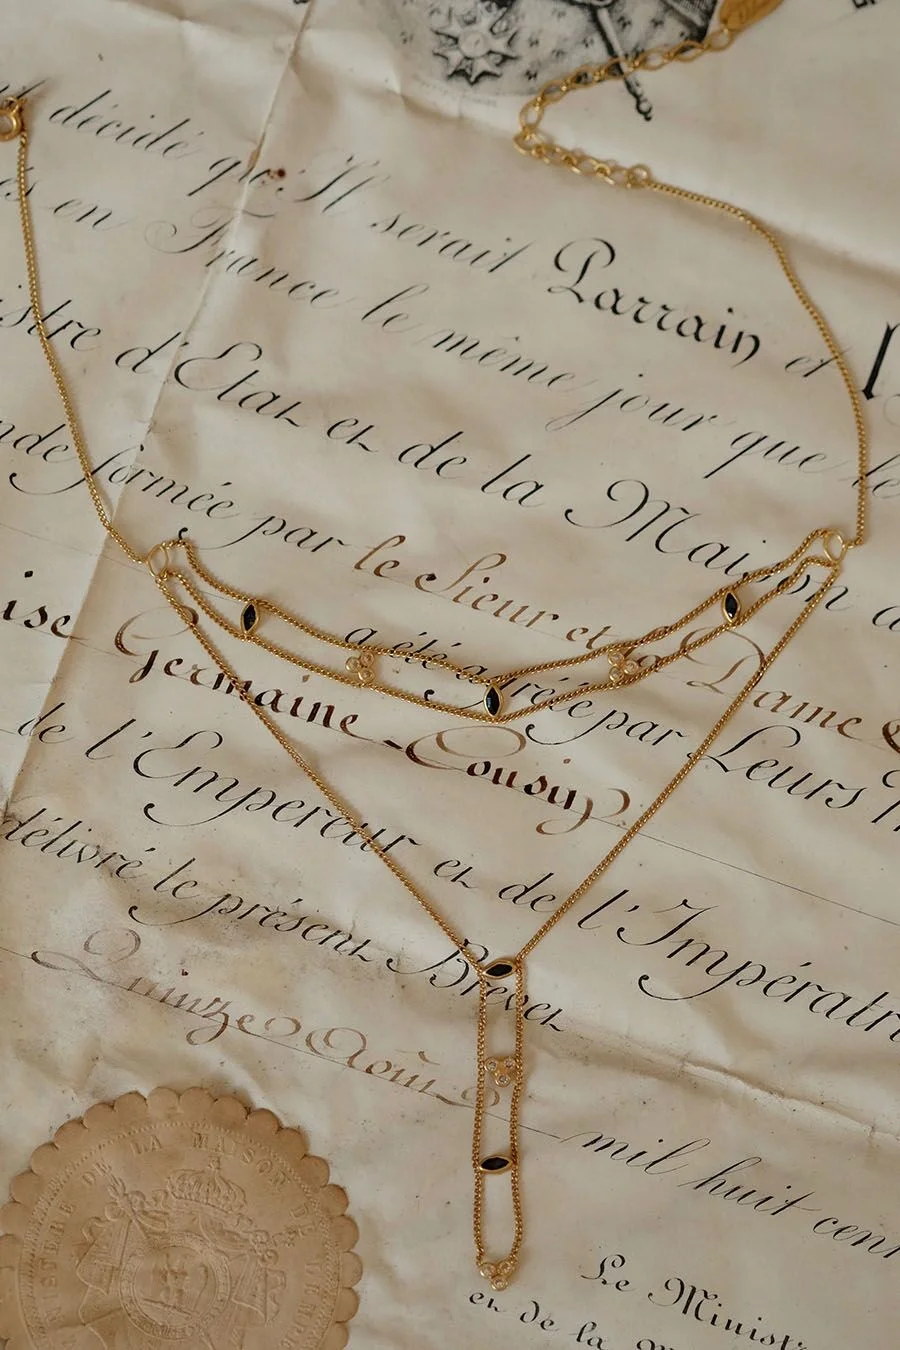 décidé qu'Il serait Parrain et
en France le même jour que
d'Etat et de la Maison
formée par le Sieur et Dame
a été agréée par Leurs
Germaine - Cousin
de l'Empereur et de l'Impératri
délivré le présent Brevet
Quinze Août mil huit cent
Le Ministre
en de la
DE LA MAISON DE